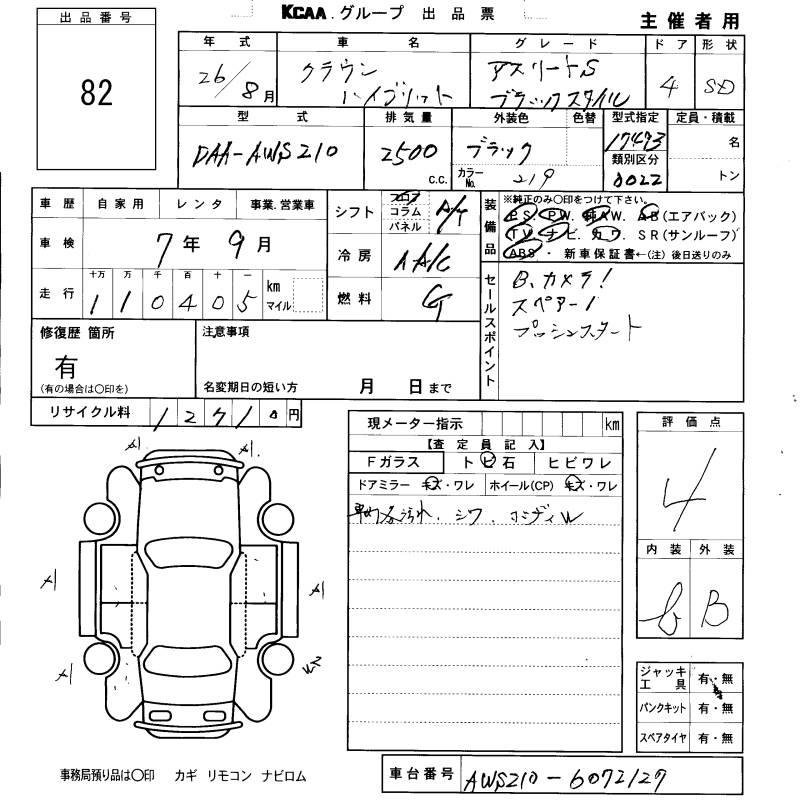 出品番号
82
KCAA.グループ 出品票
主催者用
年式 車名 グレード ドア 形状
26/8月 クラウン ハイブリット アスリートS ブラックスタイル 4 SD
型式 排気量 外装色 色替 型式指定 定員・積載
DAA-AWS210 2500 c.c. ブラック 17493 名
カラーNo. 219 類別区分 0022 トン
車歴 自家用 レンタ 事業.営業車
車検 7年9月
走行 十万 万 千 百 十 一 km マイル
110405
シフト フロア コラム パネル A/T
冷房 AAC
燃料 G
装備品
※純正のみ○印をつけて下さい。
P S. P W. 純AW. AB(エアバック)
T V. ナビ. カワ. S R(サンルーフ)
ABS ・ 新車保証書←(注)後日送りのみ
セールスポイント
B.カメラ!
スペアー1
プッシュスタート
修復歴 箇所
有
(有の場合は○印を)
注意事項
名変期日の短い方 月 日まで
リサイクル料 12710円
現メーター指示 km
【査定員記入】
Fガラス トビ石 ヒビワレ
ドアミラー キズ・ワレ ホイール(CP) キズ・ワレ
車内各汚れ、シワ.
評価点
4
内装 外装
B
ジャッキ工具 有・無
パンクキット 有・無
スペアタイヤ 有・無
A1 A1
A1 A1
A1
事務局預り品は○印 カギ リモコン ナビロム
車台番号 AWS210-6072127